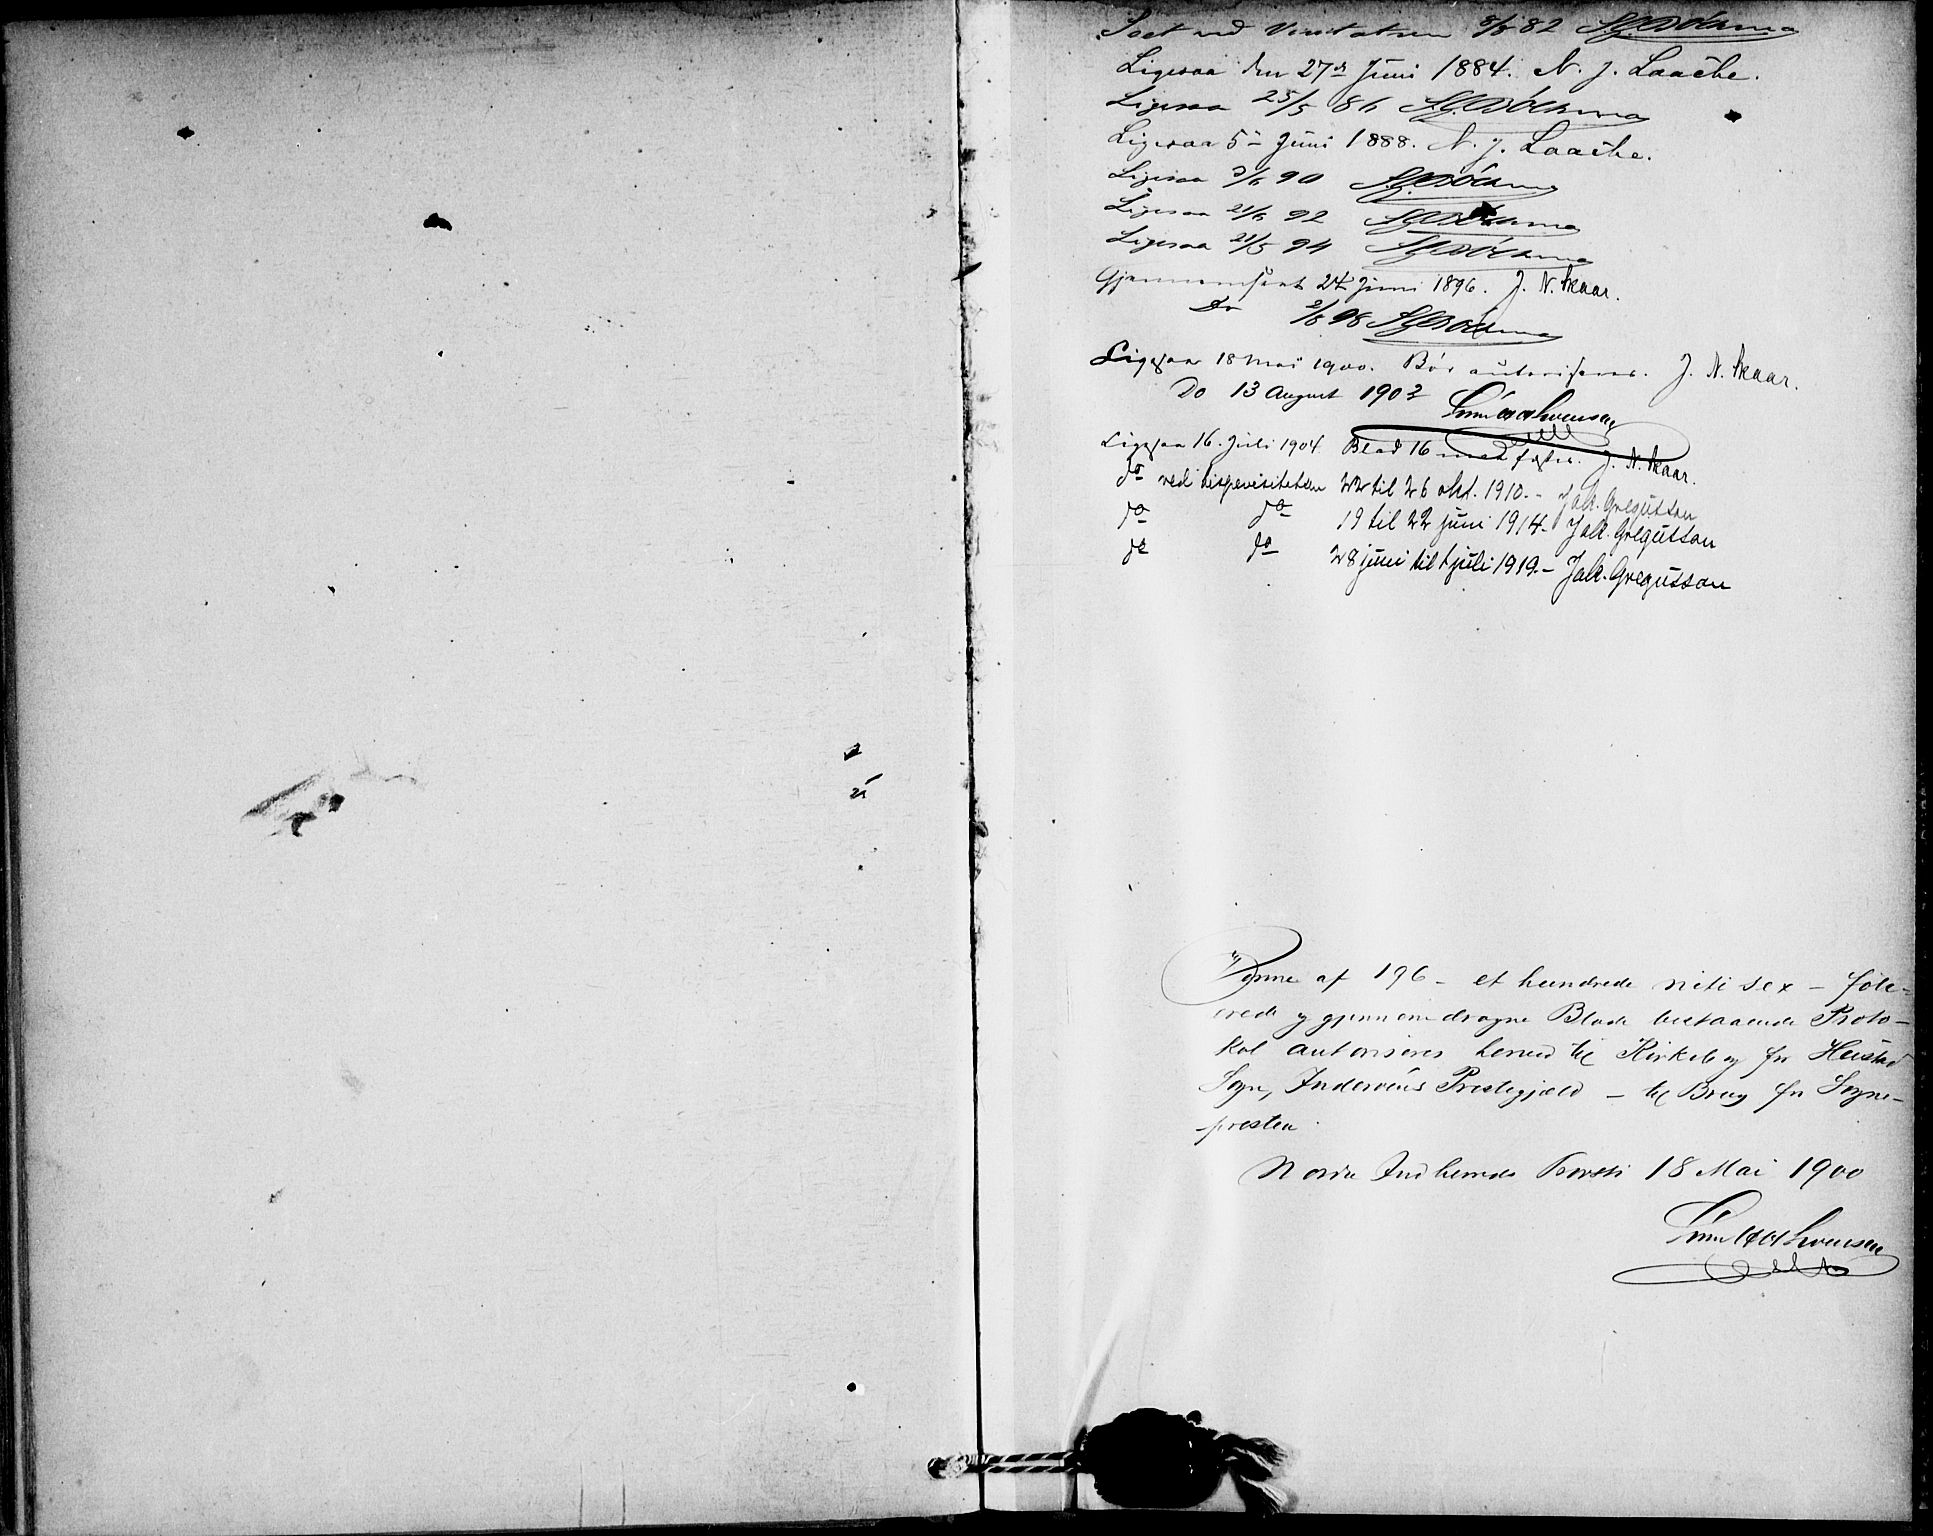 Seet ved Visitatsen 8/6 82
Ligesaa den 27de Juni 1884. N. J. Laache.
Ligesaa 25/5 86
Ligesaa 5te Juni 1888. N. J. Laache.
Ligesaa 3/6 90
Ligesaa 21/6 92
Ligesaa 21/5 94
Gjennemseet 24 Juni 1896. J. N. Skaar.
Do 2/6 98
Ligesaa 18 Mai 1900. Bør autoriseres. J. N. Skaar.
Do 13 August 1903
Ligesaa 16. Juli 1904. Blad 16 maa fæstes. J. N. Skaar.
do ved bispevisitatsen 22 til 26 okt. 1910. - Jak. Gregusson
do do 19 til 22 juni 1914. - Jak. Gregusson
do do 28 juni til 1 juli 1919. - Jak. Gregusson
Denne af 196 - et hundrede niti sex - folie-
rede og gjennemdragne Blade bestaaende Proto-
kol autoriseres herved til Kirkebog for Heustad
Sogn, Inderøens Prestegjæld - til Brug for Sogne-
presten.
Nordre Indherreds Provsti 18 Mai 1900